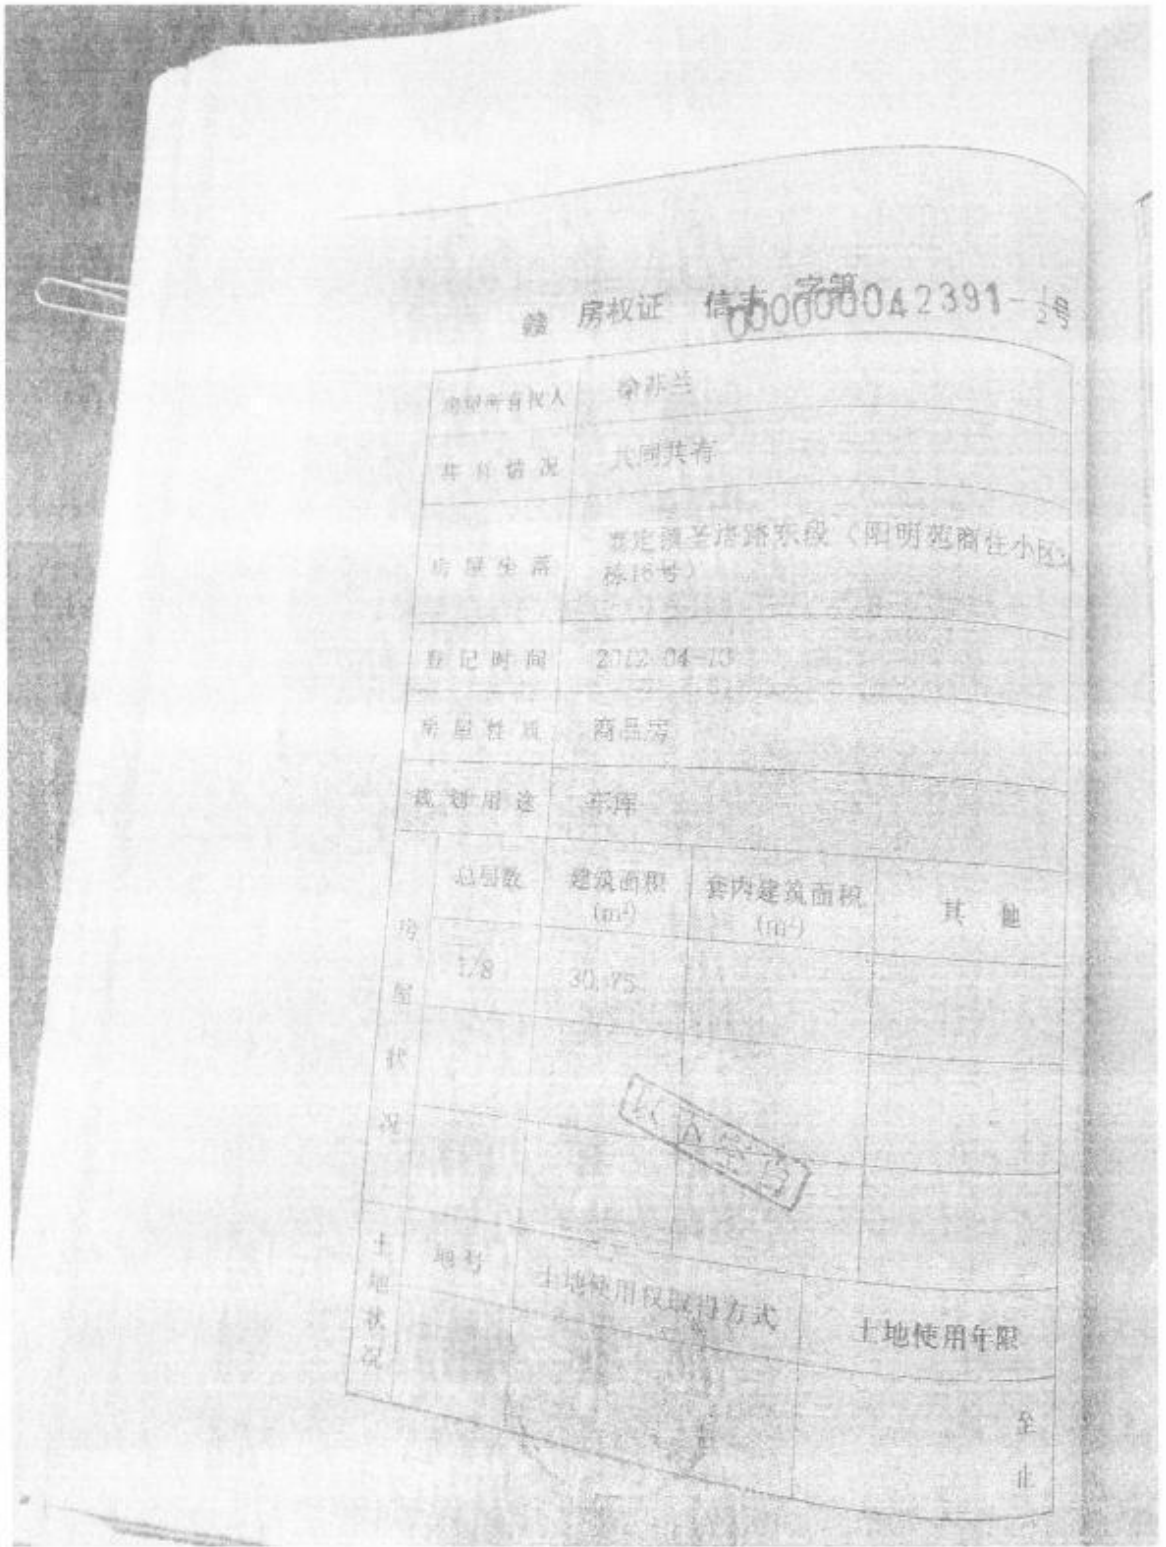 赣 房权证 信丰 字第000000042391-1/2号
房屋所有权人
共有情况 共同共有
房屋坐落 嘉定镇圣塔路东段（阳明苑商住小区
栋16号）
登记时间 2012-04-10
房屋性质 商品房
规划用途 车库
房屋状况
总层数 建筑面积(m²) 套内建筑面积(m²) 其 他
1/8 30.75
土地状况
地号 土地使用权取得方式 土地使用年限
至
止